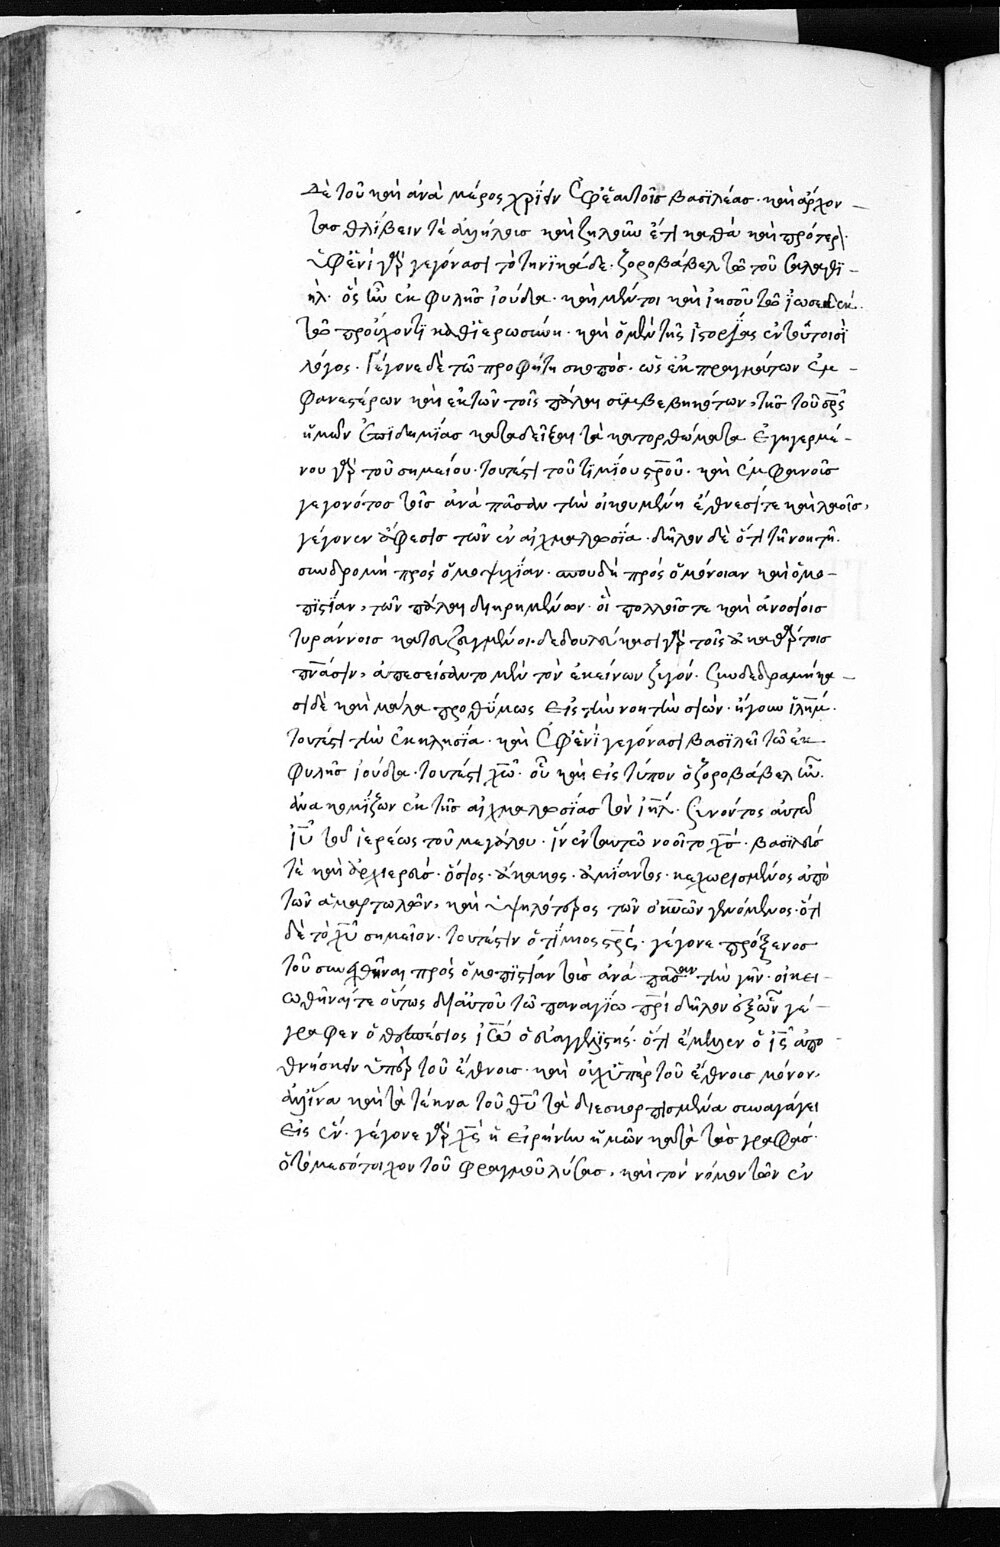 δὲ τοῦ καὶ ἀνὰ μέρος χρίειν ἐφ' ἑαυτοῖς βασιλέας· καὶ ἄρχον-
τας θλίβειν τὲ ἀλλήλοις καὶ ζηλοῦν ἔτι καθὰ καὶ πρότερ·
ὑφ' ἑνὶ γὰρ γεγόνασι τὸ τηνικάδε· ζοροβάβελ τῶ τοῦ σαλαθι-
ήλ· ὃς ἦν ἐκ φυλῆς ἰούδα· καὶ μέντοι καὶ ἰησοῦ τῶ ἰωσεδὲκ
τῶ προὔχοντι καθ' ἱερωσύνην· καὶ ὁ μὲν τῆς ἱστορίας ἐν τούτοισὶ
λόγος· Γέγονε δὲ τῶ προφήτη σκοπὸς· ὡς ἐκ πραγμάτων ἐμ-
φανεστέρων καὶ ἐκ τῶν τοῖς πάλαι συμβεβηκότων, τῆς τοῦ σρς
ἡμῶν ἐπιδημίας καταδεῖξαι τὰ κατορθώματα ἐγηγερμέ-
νου γὰρ τοῦ σημείου· τουτέστι τοῦ τιμίου στροῦ· καὶ ἐμφανοῦς
γεγονότος τοῖς ἀνὰ πᾶσαν τὴν οἰκουμένην ἔθνεσί τε καὶ λαοῖς,
γέγονεν ἄφεσις τῶν ἐν αἰχμαλωσία· δῆλον δὲ ὅτι τῆ νοητῆ·
συνδρομὴ πρὸς ὁμοψυχίαν· σπουδὴ πρὸς ὁμόνοιαν καὶ ὁμο-
πιστίαν, τῶν πάλαι διηρημένων· οἳ πολλοῖς τε καὶ ἀνοσίοις
τυράννοις κατεζευγμένοι· δεδουλεύκασι γὰρ τοῖς ἀκαθάρτοις
πνάσιν, ἀπεσείσαντο μὲν τὸν ἐκείνων ζυγόν· συνδεδραμήκα-
σι δὲ καὶ μάλα προθύμως εἰς τὴν νοητὴν σιών· ἤγουν ἱλημ·
τουτέστι τὴν ἐκκλησία· καὶ ἐφ' ἑνὶ γεγόνασι βασιλεῖ τῶ ἐκ
φυλῆς ἰούδα· τουτέστι χω· οὗ καὶ εἰς τύπον ὁ ζοροβάβελ ἦν·
ἀνακομίζων ἐκ τῆς αἰχμαλωσίας τὸν ἰηλ· ξυνόντος αὐτῶ
ἰυ τοῦ ἱερέως τοῦ μεγάλου· ἵν' ἐν ταυτῶ νοοῖτο χς· βασιλεύς
τὲ καὶ ἀρχιερεύς· ὅσιος· ἄκακος· ἀμίαντος· κεχωρισμένος ἀπὸ
τῶν ἁμαρτωλῶν, καὶ ὑψηλότερος τῶν οὐνῶν γενόμενος· ὅτι
δὲ τὸ χυ σημεῖον· τουτέστιν ὁ τίμιος στρς· γέγονε πρόξενος
τοῦ συναχθῆναι πρὸς ὁμοπιστίαν τοὺς ἀνὰ πᾶσαν τὴν γῆν· οἰκει-
ωθῆναί τε οὕτως δι' αὐτοῦ τῶ παναγίω πρι δῆλον ἐξ ὧν γέ-
γραφεν ὁ θεσπέσιος ἰω ὁ εὐαγγελιστής· ὅτι ἔμελλεν ὁ ις ἀπο-
θνήσκειν ὑπὲρ τοῦ ἔθνους· καὶ οὐχ ὑπὲρ τοῦ ἔθνους μόνον,
ἀλλ' ἵνα καὶ τὰ τέκνα τοῦ θυ τὰ διεσκορπισμένα συναγάγει
εἰς ἕν· γέγονε γὰρ χς ἡ εἰρήνη ἡμῶν κατὰ τὰς γραφάς·
ὁ τὸ μεσότοιχον τοῦ φραγμοῦ λύσας, καὶ τὸν νόμον τῶν ἐν